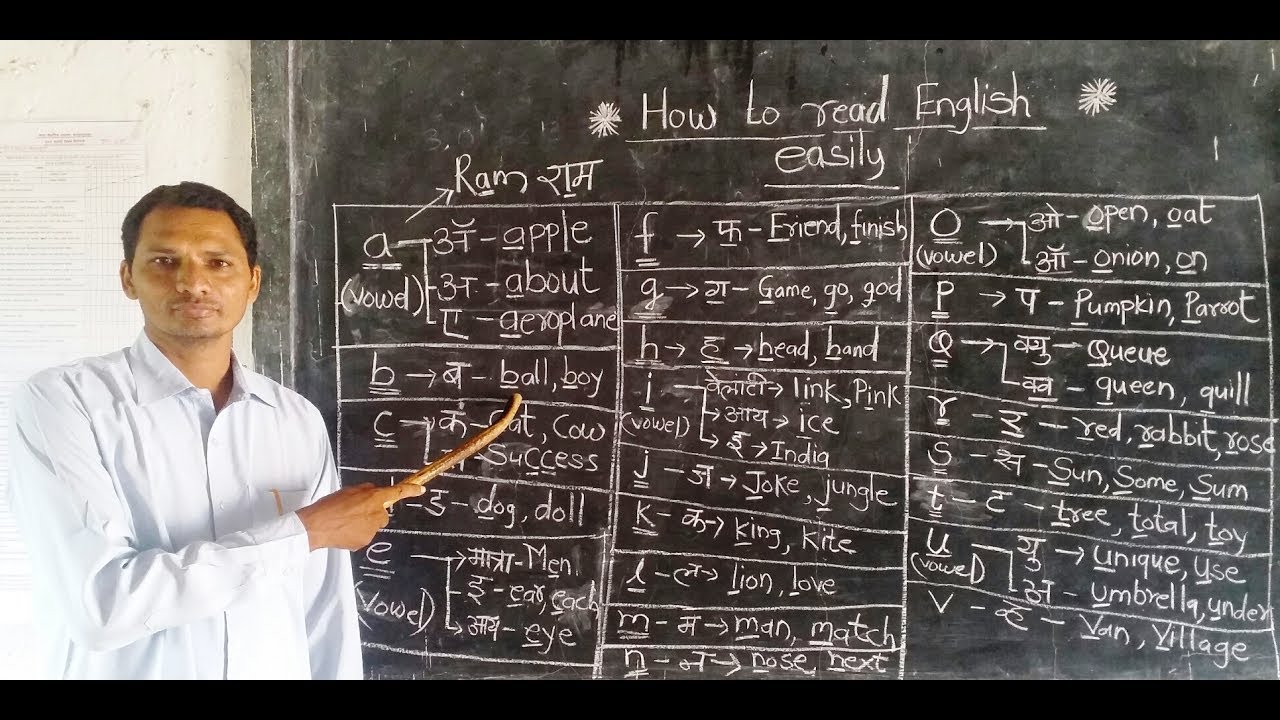 How to read English
easily
Ram राम
a अॅ - apple
(vowel) अ - about
ए - aeroplane
b → ब - ball, boy
c → क - Cat, Cow
Success
ड - dog, doll
e → मात्रा - Men
(Vowel) इ - ear, each
→ आय - eye
f → फ - Friend, finish
g → ग - Game, go, god
h → ह → head, hand
i → वेलांटी → link, Pink
(vowel) → आय → ice
→ इ → India
j - ज → Joke, jungle
k - क → king, kite
l - ल → lion, love
m - म → man, match
n - न → nose, next
O → ओ - open, oat
(vowel) ऑ - onion, on
P → प - Pumpkin, Parrot
Q → क्यु → Queue
क्व - queen, quill
r - र - red, rabbit, rose
S - स - Sun, Some, Sum
t - ट - tree, total, toy
u यु → unique, use
(vowel) अ - umbrella, under
v - व्ह - Van, Village